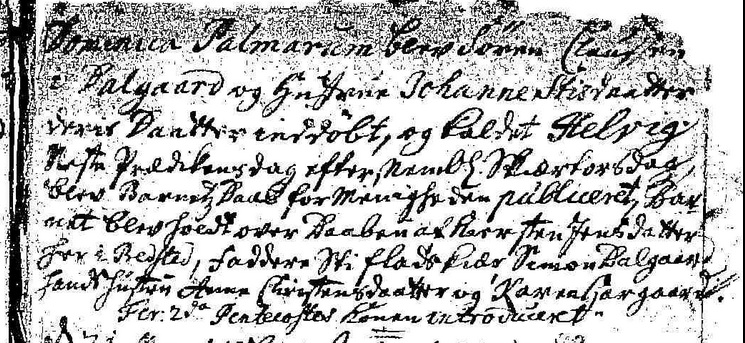 Dominica Palmarum blev Sören Clausen
i Dalgaard og Hustrue Johanne Stisdaatter
deris Daatter inddöbt, og kaldet Helvig
Neste Prædikensdag efter, Nembl. Skiertorsdag,
blev Barnetz Daab for Menigheden publiceret, Bar
net blev holdt over Daaben af Kiersten Jensdatter
her i Bedsted, Faddere Sti Fladskiær Simon Dalgaard
hands hustru Anne Christensdaatter og Karen Hargaard.
Fer: 2da Pentecostes Konen introduceret